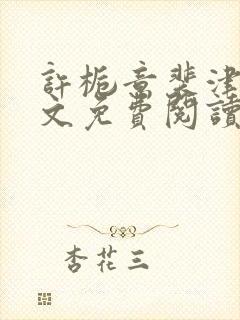 許栀意裴津
文免費閱讀
杏花三